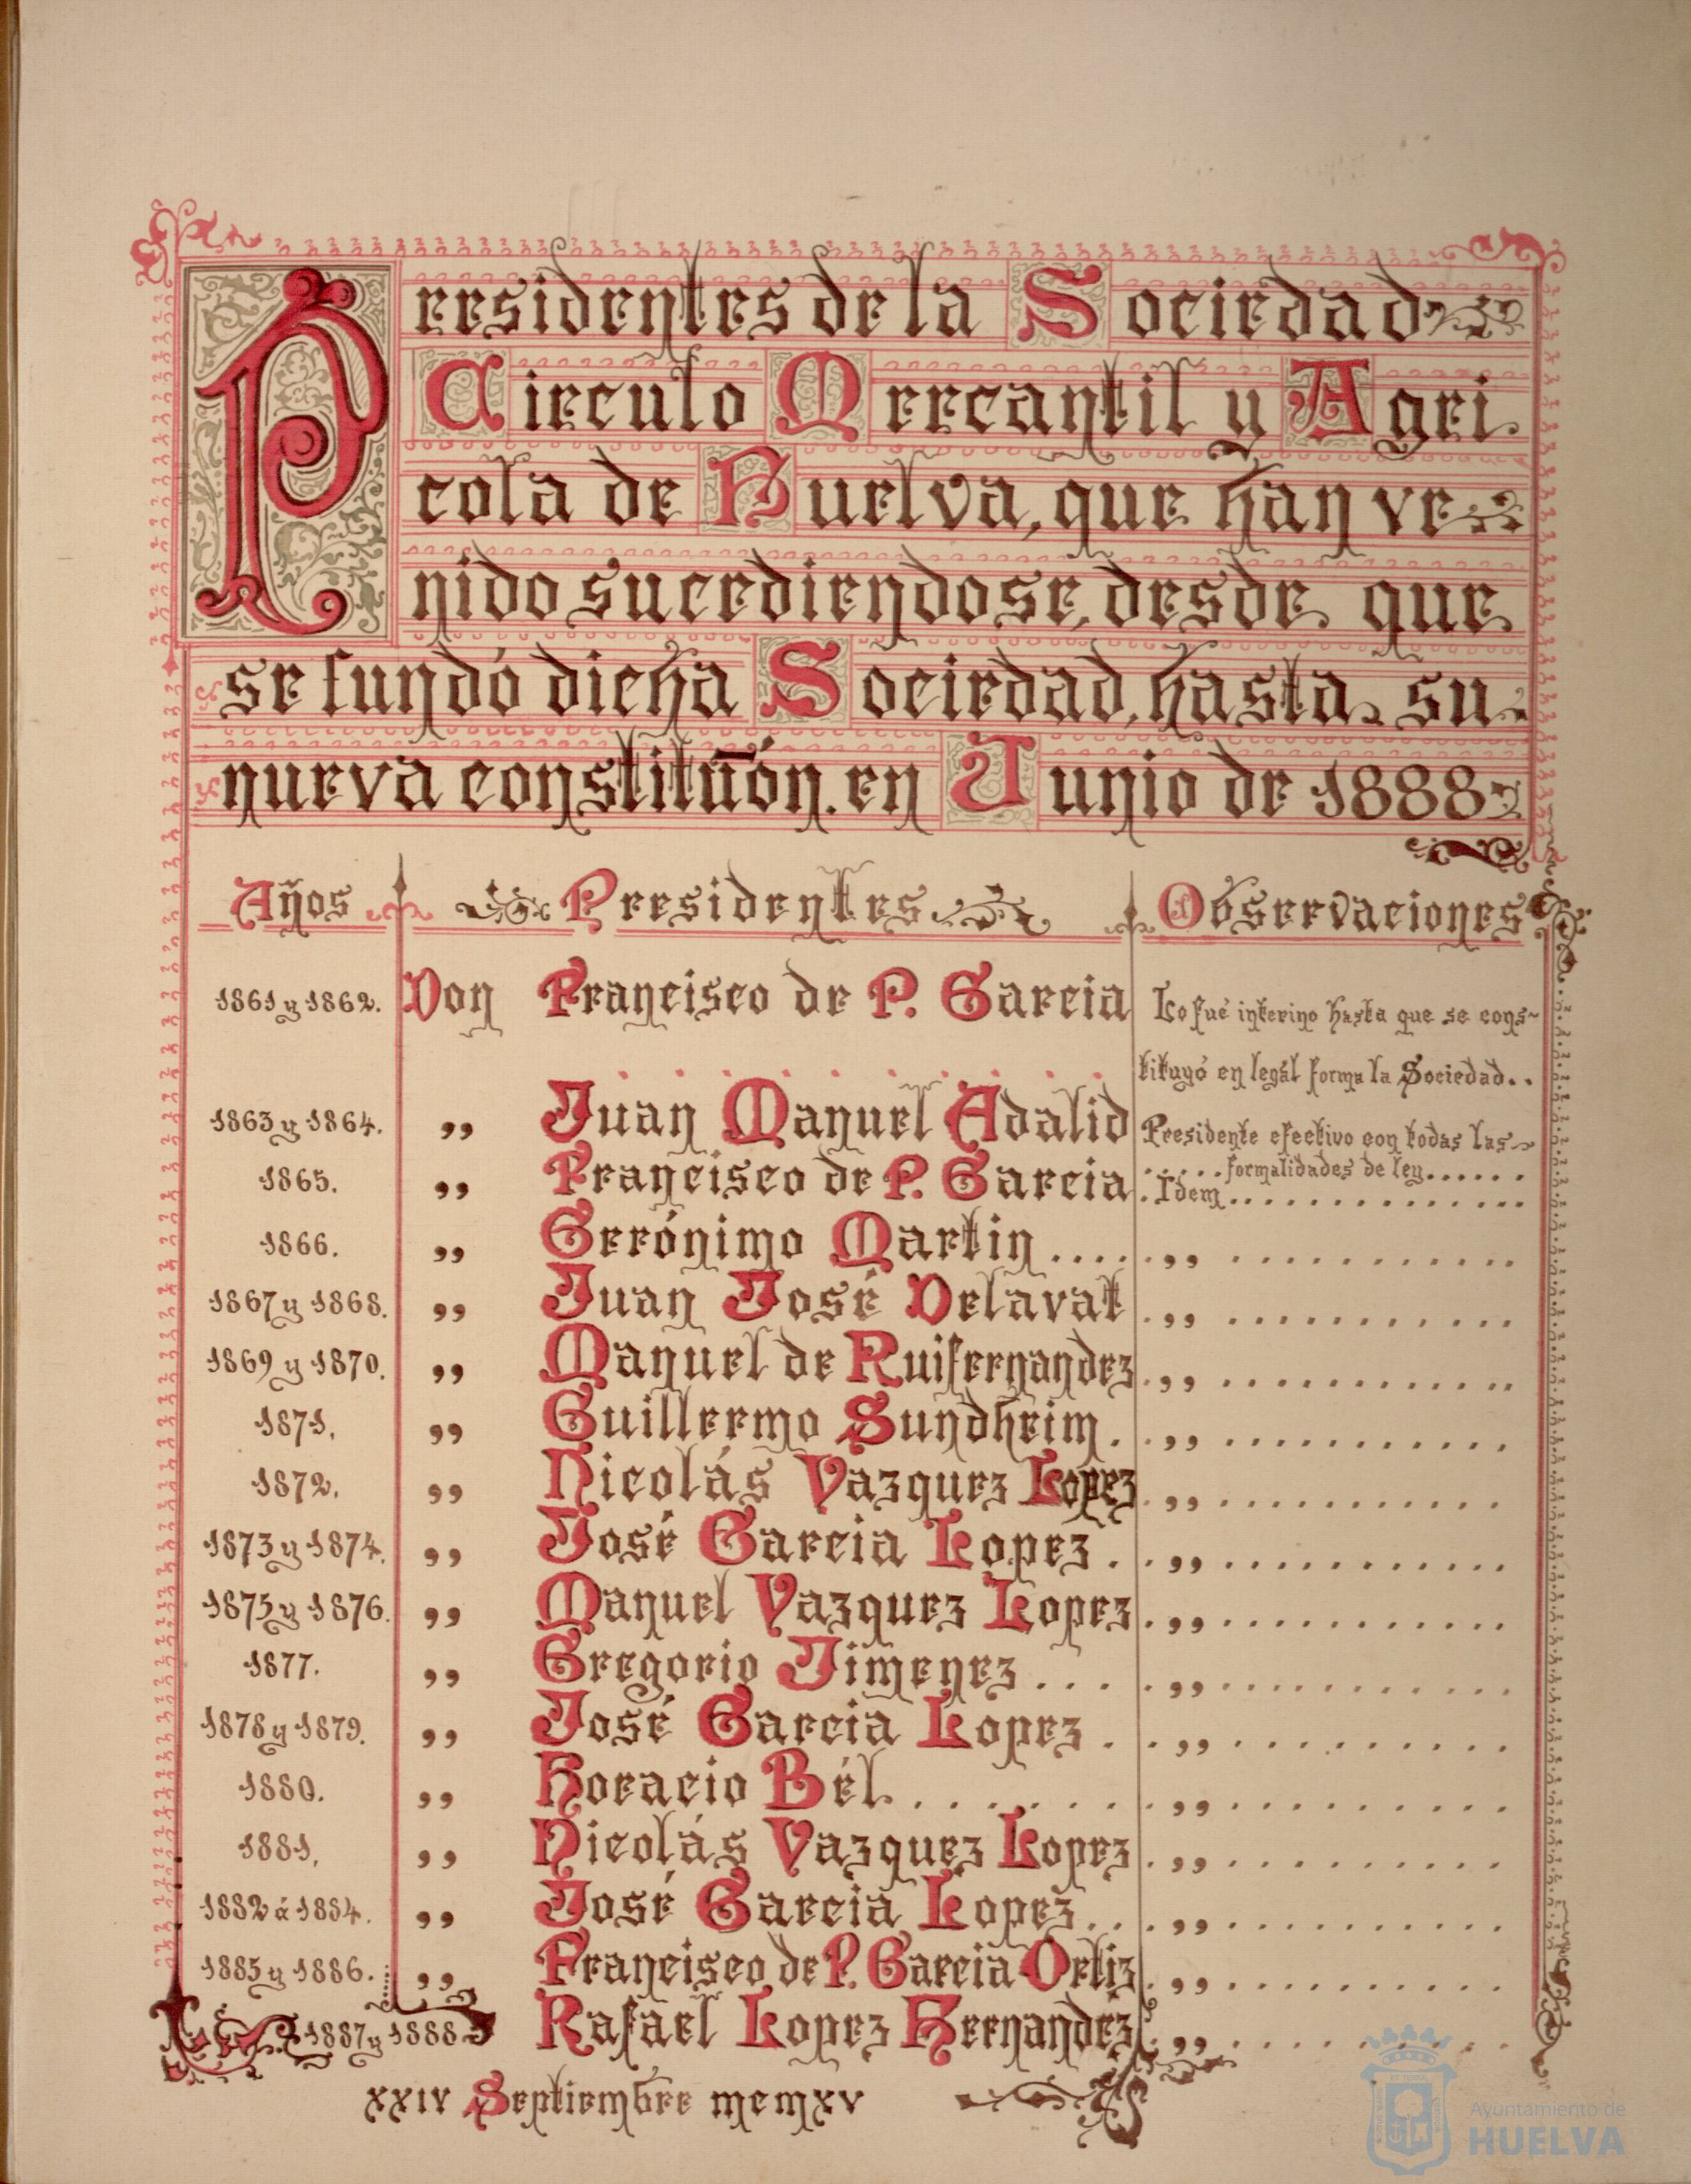 Presidentes de la Sociedad
Circulo Mercantil y Agri
cola de Huelva, que han ve
nido sucediendose, desde que
se fundó dicha Sociedad, hasta su
nueva constituıón. en Junio de 1888
Años Presidentes Observaciones
1861 y 1862. Don Francisco de P. Garcia Lo fué interino hasta que se cons~
tituyó en legál forma la Sociedad..
1863 y 1864. ,, Juan Manuel Adalid Presidente efectivo con todas las
.....formalidades de ley......
1865. ,, Francisco de P. Garcia .Idem..............
1866. ,, Gerónimo Martin .... .,, ............
1867 y 1868. ,, Juan José Delavat .,, ............
1869 y 1870. ,, Manuel de Ruifernandez .,, ............
1871. ,, Guillermo Sundheim. .,, ............
1872. ,, Nicolás Vazquez Lopez .,, ............
1873 y 1874. ,, José Garcia Lopez . .,, ............
1875 y 1876. ,, Manuel Vazquez Lopez .,, ............
1877. ,, Gregorio Jimenez ... .,, ............
1878 y 1879. ,, José Garcia Lopez . .,, ............
1880. ,, Horacio Bél. ....... .,, ............
1881. ,, Nicolás Vazquez Lopez .,, ............
1882 á 1884. ,, José Garcia Lopez.. .,, ............
1885 y 1886. ,, Francisco de P. Garcia Ortiz .,, ............
1887 y 1888 Rafael Lopez Hernandez .,, ............
XXIV Septiembre mcmxv
Ayuntamiento de
HUELVA